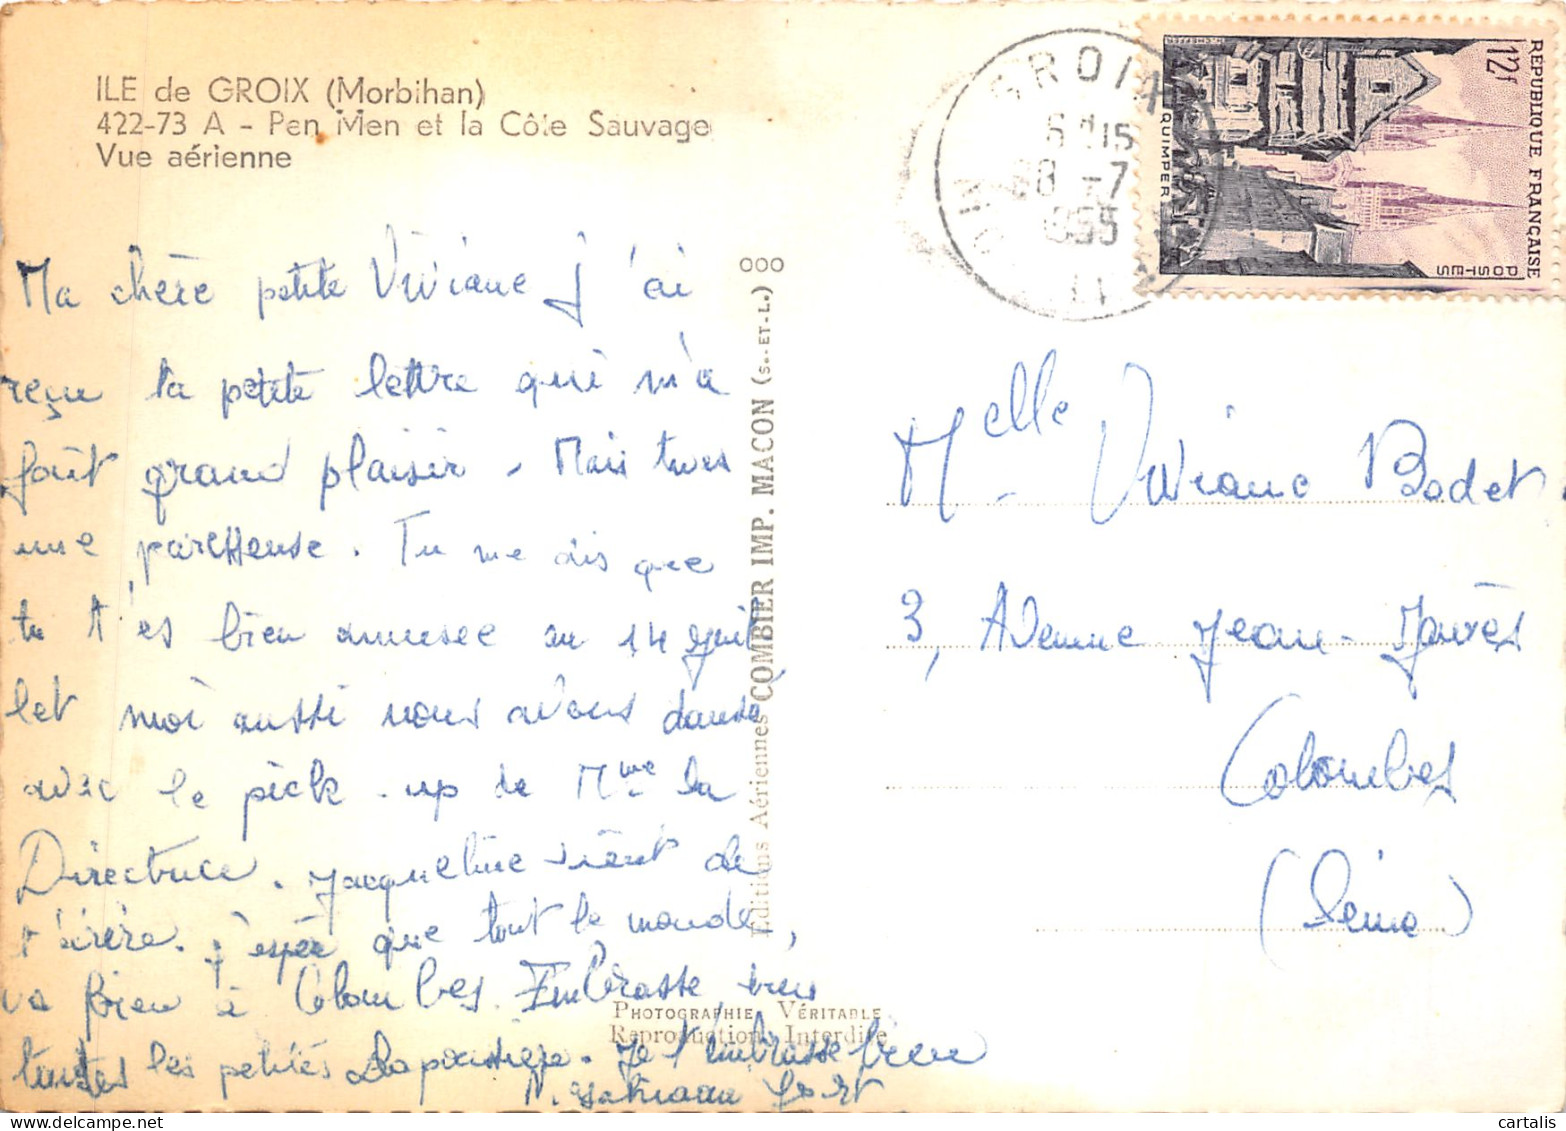 ILE de GROIX (Morbihan)
422-73 A - Pen Men et la Côte Sauvage
Vue aérienne
Ma chère petite Viviane j'ai
reçu ta petite lettre qui m'a
fait grand plaisir. Mais tu es
une paresseuse. Tu me dis que
tu t'es bien amusée au 14 juil
let moi aussi nous avons dansé
avec le pick-up de Mme la
Directrice. Jacqueline vient de
t'écrire. J'espère que tout le monde
va bien à Colombes. Embrasse bien
toutes les petites
Je t'embrasse bien
000
Editions Aériennes COMBIER IMP. MACON (S.-ET-L.)
PHOTOGRAPHIE VÉRITABLE
Reproduction Interdite
GROIX
MORBIHAN
28 -7
1955
REPUBLIQUE FRANÇAISE
12f
POSTES
QUIMPER
H. CHEFFER
Melle Viviane Bodet
3, Avenue Jean-Jaurès
Colombes
(Seine)
cartalis